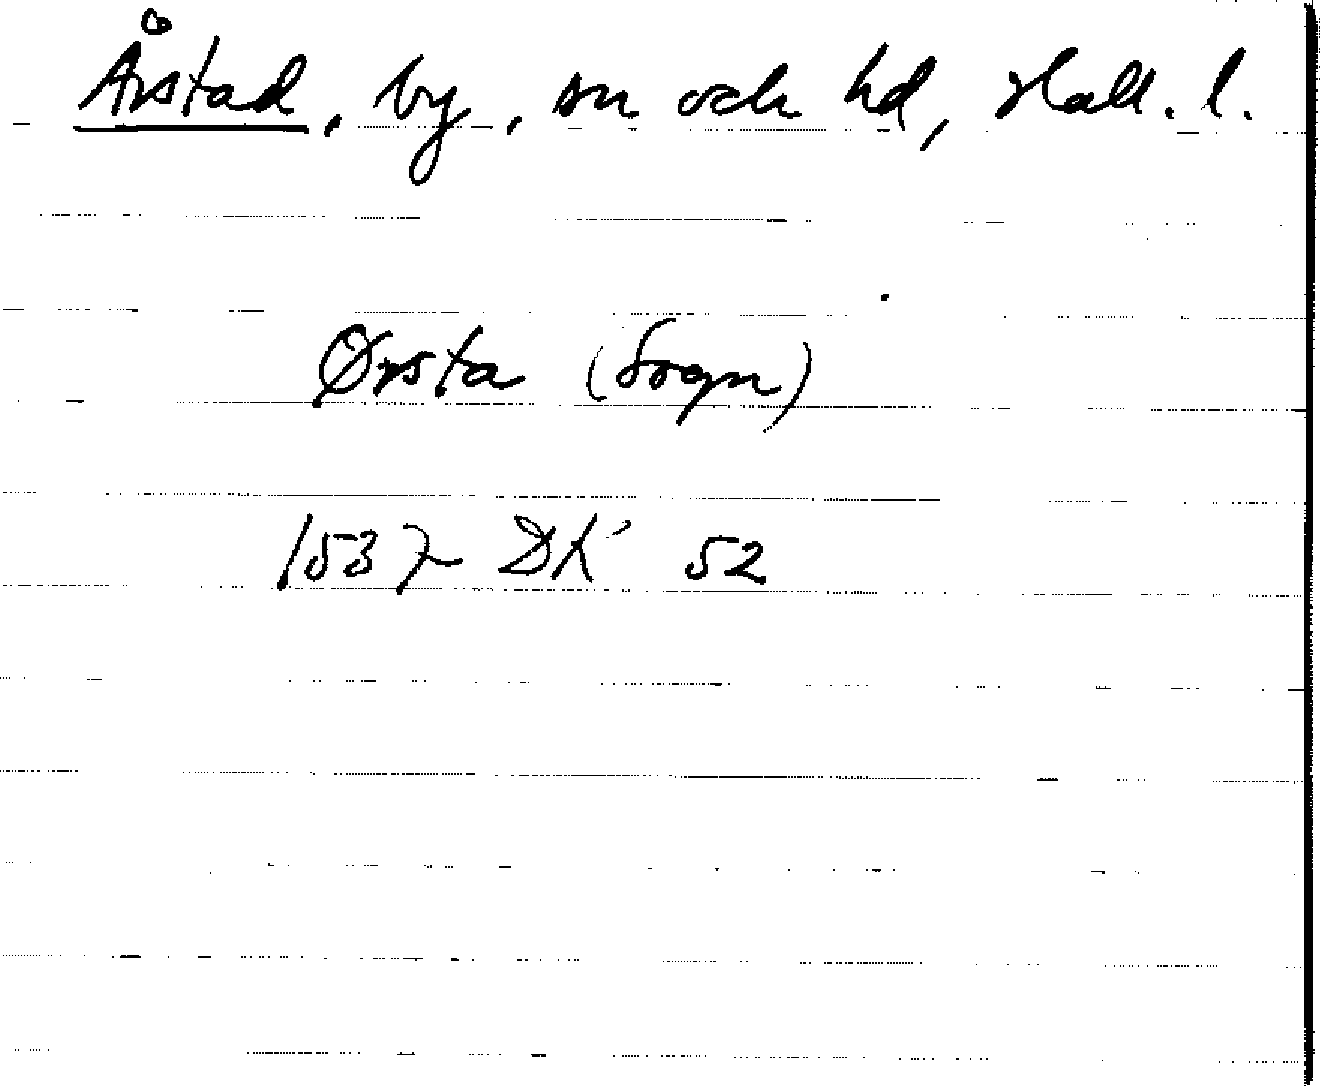 Årstad, by, sn och hd, Hall. l.
Ørsta (Sogn)
1537 DK 52